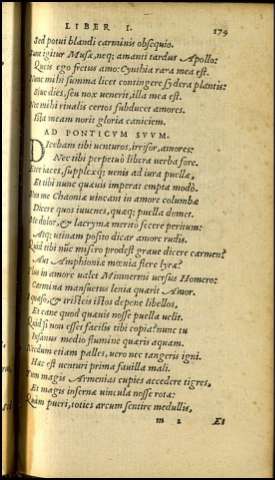 LIBER I. 179
Sed potui blandi carminis obsequio.
Sunt igitur Musæ, neq; amanti tardus Apollo:
Queis ego fretus amo: Cynthia rara mea est.
Nunc mihi summa licet contingere sydera plantis:
Siue dies, seu nox uenerit, illa mea est.
Nec mihi riualis certos subducet amores.
Ista meam norit gloria caniciem.
AD PONTICVM SVVM.
Dicebam tibi uenturos, irrisor, amores:
Nec tibi perpetuò libera uerba fore.
Ecce iaces, supplexq; uenis ad iura puellæ,
Et tibi nunc quæuis imperat empta modò.
Non me Chaoniæ uincant in amore columbæ
Dicere quos iuuenes, quæq; puella domet.
Me dolor, & lacrymæ meritò fecere peritum:
Atq; utinam posito dicar amore rudis.
Quid tibi nũc misero prodest graue dicere carmen?
Aut Amphioniæ mœnia flere lyræ?
Plus in amore ualet Mimnermi uersus Homero:
Carmina mansuetus lenia quærit Amor.
I quæso, & tristeis istos depone libellos,
Et cane quod quæuis nosse puella uelit.
Quid si non esset facilis tibi copia? nunc tu
Insanus medio flumine quæris aquam.
Necdum etiam palles, uero nec tangeris igni.
Hæc est uenturi prima fauilla mali.
Tum magis Armenias cupies accedere tigres,
Et magis infernæ uincula nosse rotæ:
Quàm pueri, toties arcum sentire medullis,
m 2 Et